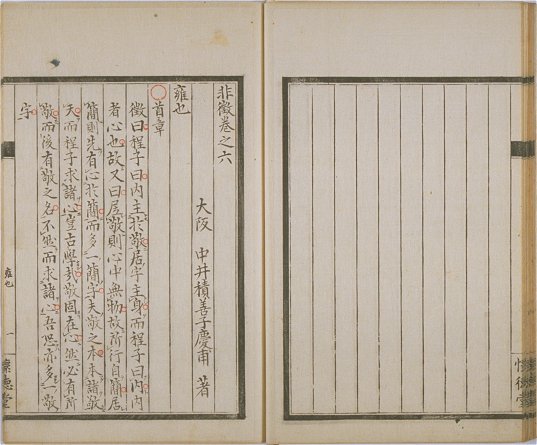 非徴巻之六
大阪　中井積善子慶甫　著
雍也
〇首章
徴曰程子曰内主於敬居字主身而程子曰内内
者心也故又曰居敬則心中無物故所行自簡居
簡則先有心於簡而多一簡字夫敬之本本諸敬
天而程子求諸心豈古學哉敬固在心然必有所
敬而後有敬之名不然而求諸心吾恐亦多一敬
字
雍也
一
懷德堂